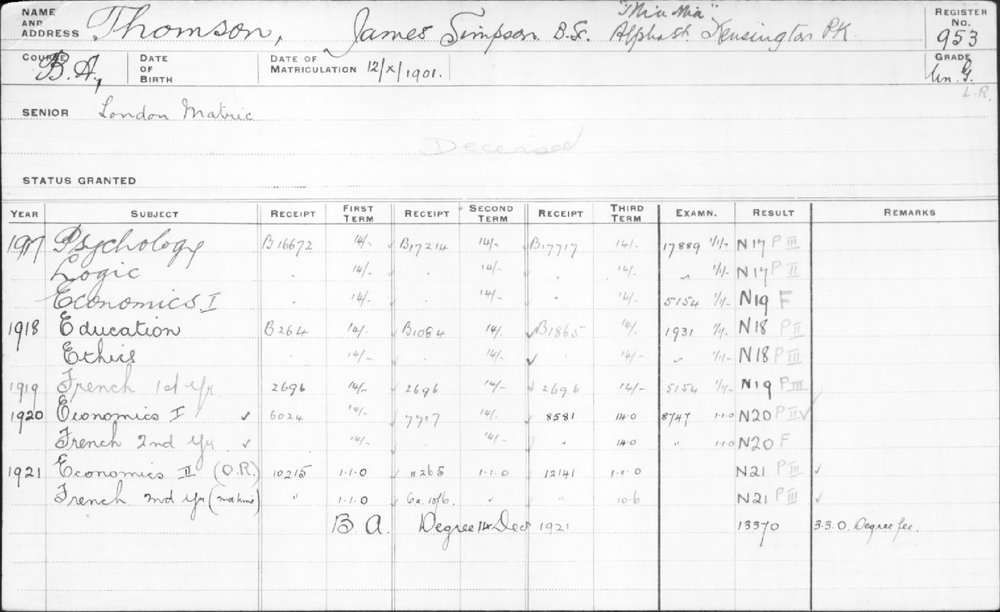 NAME AND ADDRESS Thomson, James Simpson B.Sc. "Mia Mia" Alpha St. Kensington Pk. REGISTER No. 953
COURSE B.A., DATE OF BIRTH DATE OF MATRICULATION 12/X/1901. GRADE Un. G. L.R.
SENIOR London Matric
Deceased
STATUS GRANTED
YEAR SUBJECT RECEIPT FIRST TERM RECEIPT SECOND TERM RECEIPT THIRD TERM EXAMN. RESULT REMARKS
1917 Psychology B16672 14/- B17214 14/- B17717 14/- 17889 1/1/- N17 P III
Logic . 14/- . 14/- . 14/- " 1/1/- N17 P II
Economics I . 14/- . 14/. . 14/- 5154 1/1/- N19 F
1918 Education B264 14/- B1084 14/. B1865 14/. 1931 1/1/- N18 P II
Ethics . 14/- . 14/- . 14/- " 1/1/- N18 P III
1919 French 1st Yr 2696 14/- 2696 14/- 2696 14/- 5154 1/1/- N19 P III
1920 Economics I ✓ 6024 14/- 7717 14/. 8581 14.0 8747 1.1.0 N20 P II ✓
French 2nd Yr ✓ 14/- 14/- 14.0 " 1.1.0 N20 F
1921 Economics II (O.R.) 10215 1.1.0 11265 1.1.0 12141 1.1.0 N21 P III ✓
French 2nd Yr " 1.1.0 " " 10.6 N21 P III ✓
B A. Degree 14 Dec 1921 13370 3.3.0. Degree fee.